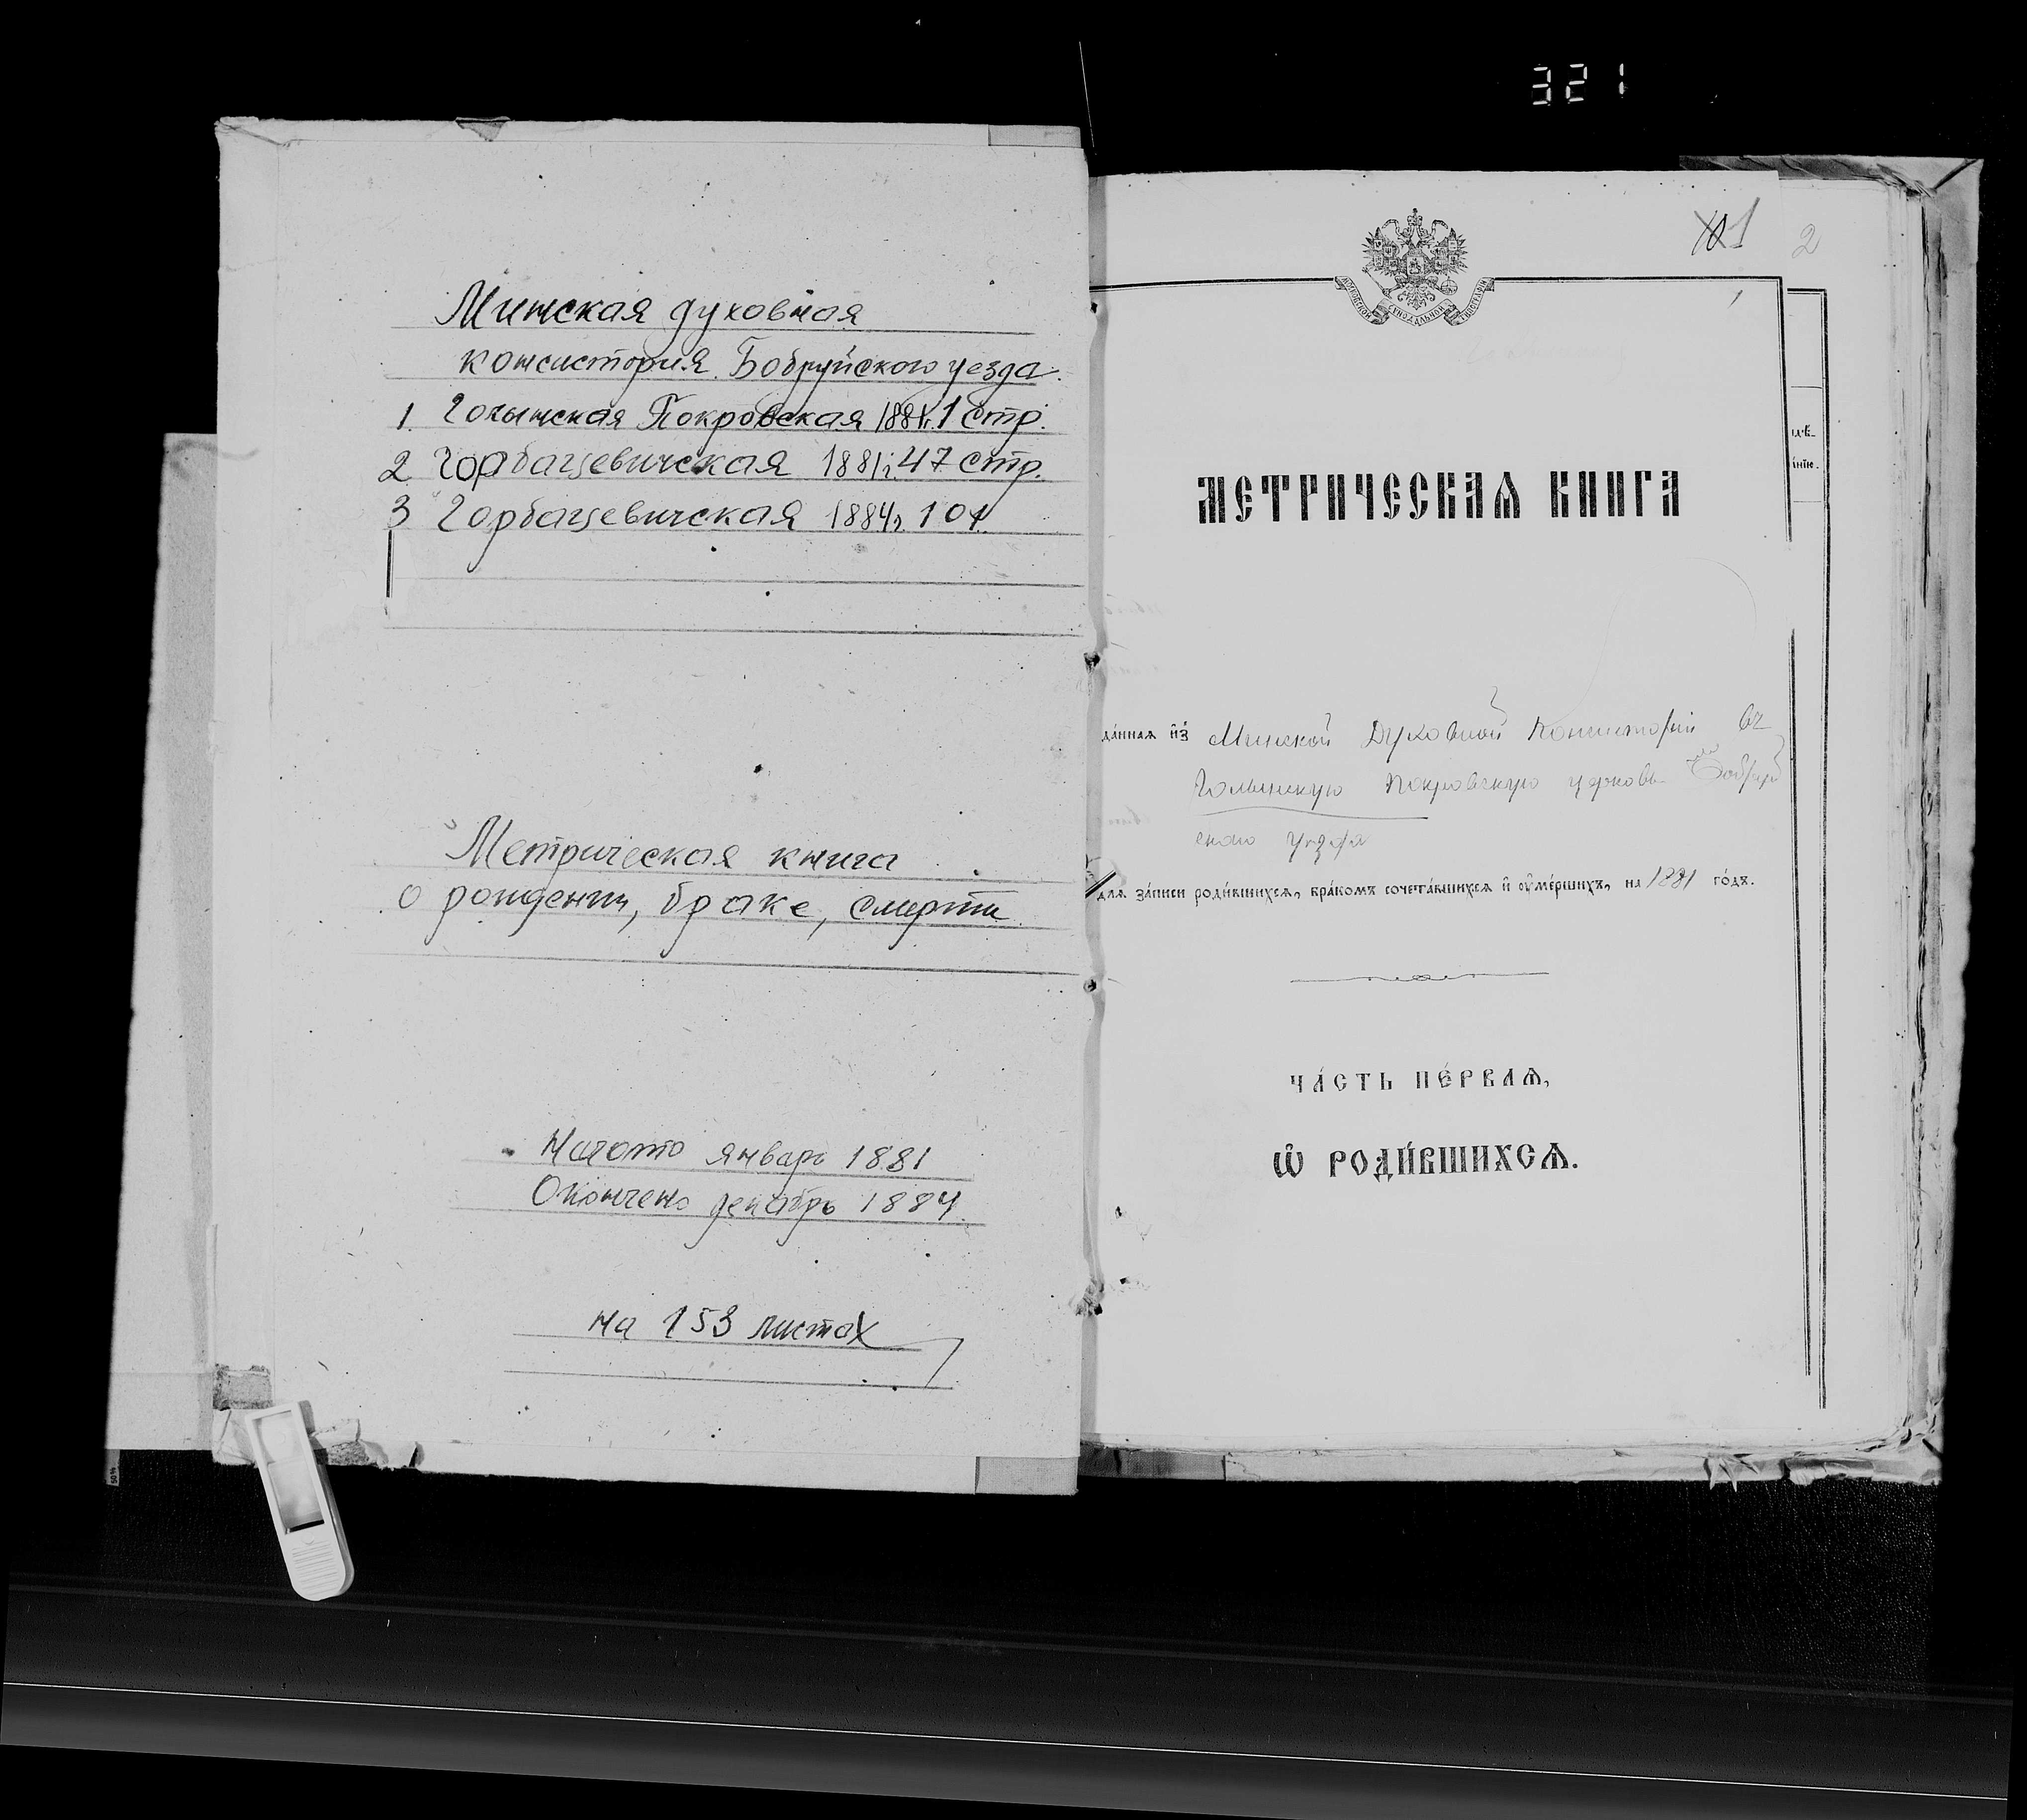 321
Минская духовная
консистория Бобруйского уезда.
1. Голынская Покровская 1881г. 1 стр.
2 Горбацевичская 1881г. 47 стр.
3 Горбацевичская 1884г. 101
Метрическая книга
о рождении, браке, смерти
Начато январь 1881
Окончено декабрь 1884
на 153 листах
1
2
МОСКОВСКОЙ СѴНОДАЛЬНОЙ ТИПОГРАФІИ
МЕТРИЧЕСКАѦ КНИГА
да́ннаѧ и҆з̾ Минской Духовной Консисторіи въ
Голынскую Покровскую церковь Бобруй
скаго Уѣзда
длѧ за́писи роди́вшихсѧ, бра́комъ сочета́вшихсѧ и҆ ᲂу҆ме́ршихъ, на 1881 го́дъ.
ЧА́СТЬ ПЕ́РВАѦ,
Ѽ РОДИ́ВШИХСѦ.